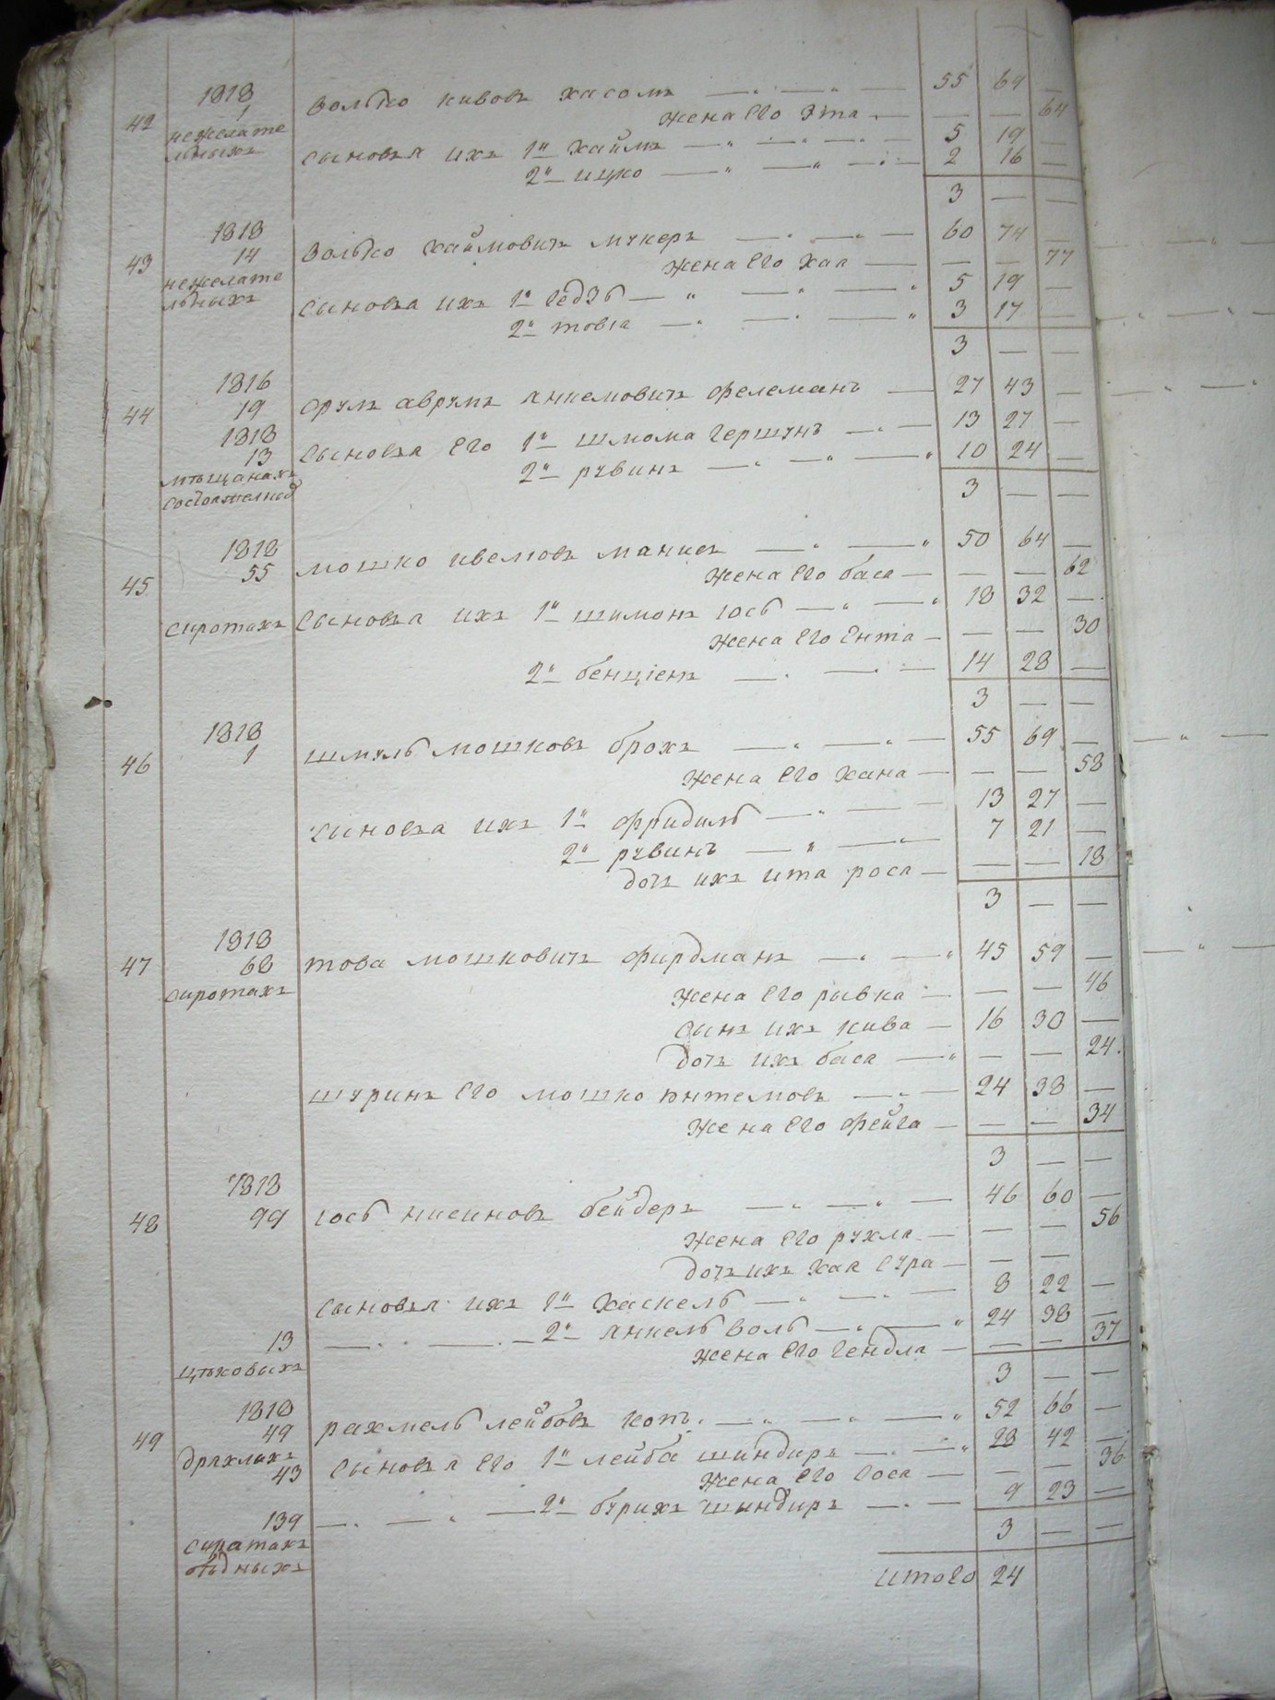 1818 Волько кивовъ хасомъ — 55 69 —
42 1 жена его Эта — — — 64
нежелате
льныхъ сыновья ихъ 1й хаймъ — 5 19 —
2й ицко — 2 16 —
3 — —
1818
43 14 Волько хаймовичъ мукеръ — 60 74 —
нежелате жена его хая — — — 77
льныхъ сыновья ихъ 1й гедзь — 5 19 —
2й товіа — 3 17 —
3 — —
1816
44 19 Срулъ аврумъ янкемовичъ фелеманъ — 27 43 —
1818
13 сыновья его 1й шмома гершунъ — 13 27 —
мѣщанахъ 2й рувинъ — 10 24 —
3 — —
1818
45 55 мошко ивемовъ манисъ — 50 64 —
жена его баса — — — 62
сиротахъ сыновья ихъ 1й шимонъ іось — 18 32 —
жена его Ента — — — 30
2й бенціенъ — 14 28 —
3 — —
1818
46 1 шмуль мошковъ брохъ — 55 69 —
жена его хана — — — 58
сыновья ихъ 1й фридиль — 13 27 —
2й рувинъ — 7 21 —
дочь ихъ ита роса — — — 18
3 — —
1818
47 68 това мошковичъ фирдманъ — 45 59 —
сиротахъ жена его рывка — — — 46
сынъ ихъ кива — 16 30 —
дочь ихъ баса — — — 24
шуринъ его мошко — 24 38 —
жена его фейга — — — 34
3 — —
1818
48 99 іось нисиновъ бейдеръ — 46 60 —
жена его рухла — — — 56
дочь ихъ хая сура — — —
сыновья ихъ 1й хаскель — 8 22 —
13 — 2й янкель воль — 24 38 —
цѣховыхъ жена его гендла — — — 37
3 — —
1818
49 49 рахмель лейбовъ котъ — 52 66 —
дряхлыхъ
43 сыновья его 1й лейба шиндиръ — 28 42 —
жена его соса — — — 36
139 — 2й бурихъ шиндиръ — 9 23 —
сиротахъ 3 — —
бѣдныхъ
итого 24